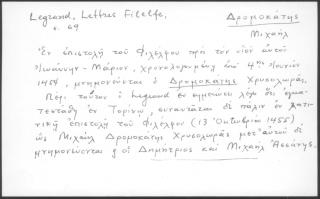 Legrand, Lettres Filelfe,
σ. 69
Δρομοκάτης
Μιχαήλ
Ἐν ἐπιστολῇ τοῦ Φιλέλφου πρὸς τὸν υἱὸν αὐτοῦ
Ἰωάννην-Μάριον, χρονολογουμένῃ ἀπὸ 4ης Ἰουνίου
1454, μνημονεύεται ὁ Δρομοκάτης Χρυσολωρᾶς.
Περὶ τούτου ὁ Legrand ἐν σημειώσει λέγει ὅτι
τῷ Τορίνῳ, συναντᾶται δὲ πάλιν ἐν λατι-
νικῇ ἐπιστολῇ τοῦ Φιλέλφου (13 Ὀκτωβρίου 1455)
ὡς Μιχαὴλ Δρομοκάτης Χρυσολωρᾶς. μετ' αὐτοῦ δὲ
μνημονεύονται οἱ Δημήτριος καὶ Μιχαὴλ Ἀσσάνης.